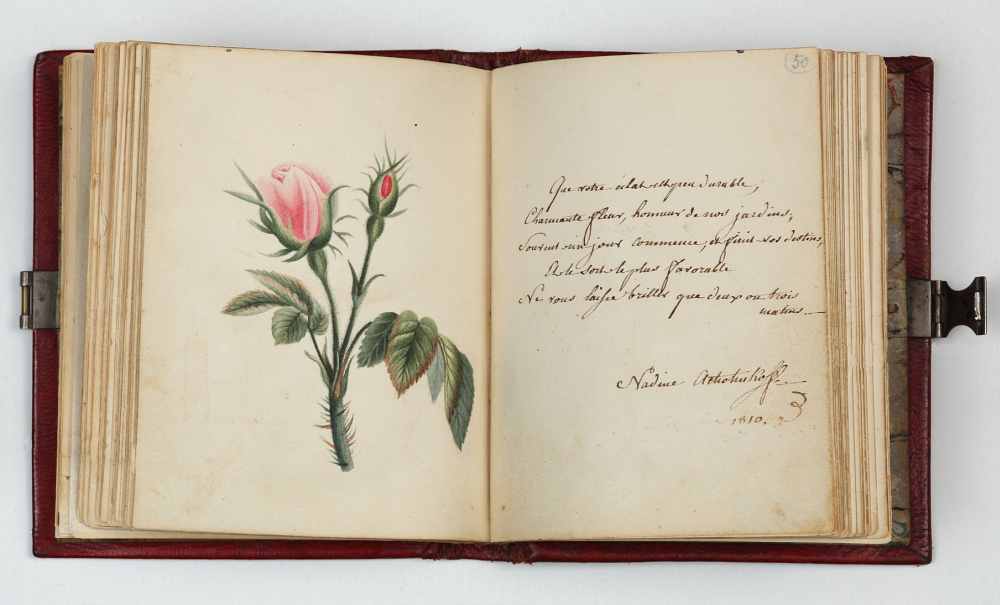 50
Que votre éclat est peu durable,
Charmante fleur, honneur de nos jardins;
Souvent un jour commence, et finit vos destins,
Et le sort le plus favorable
Ne vous laisse briller que deux ou trois
matins.
Nadine
1810.